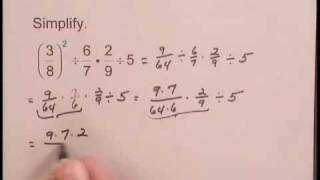 Simplify.
(3/8)² ÷ 6/7 · 2/9 ÷ 5 = 9/64 ÷ 6/7 · 2/9 ÷ 5
= 9/64 · 7/6 · 2/9 ÷ 5 = 9·7/64·6 · 2/9 ÷ 5
= 9·7·2